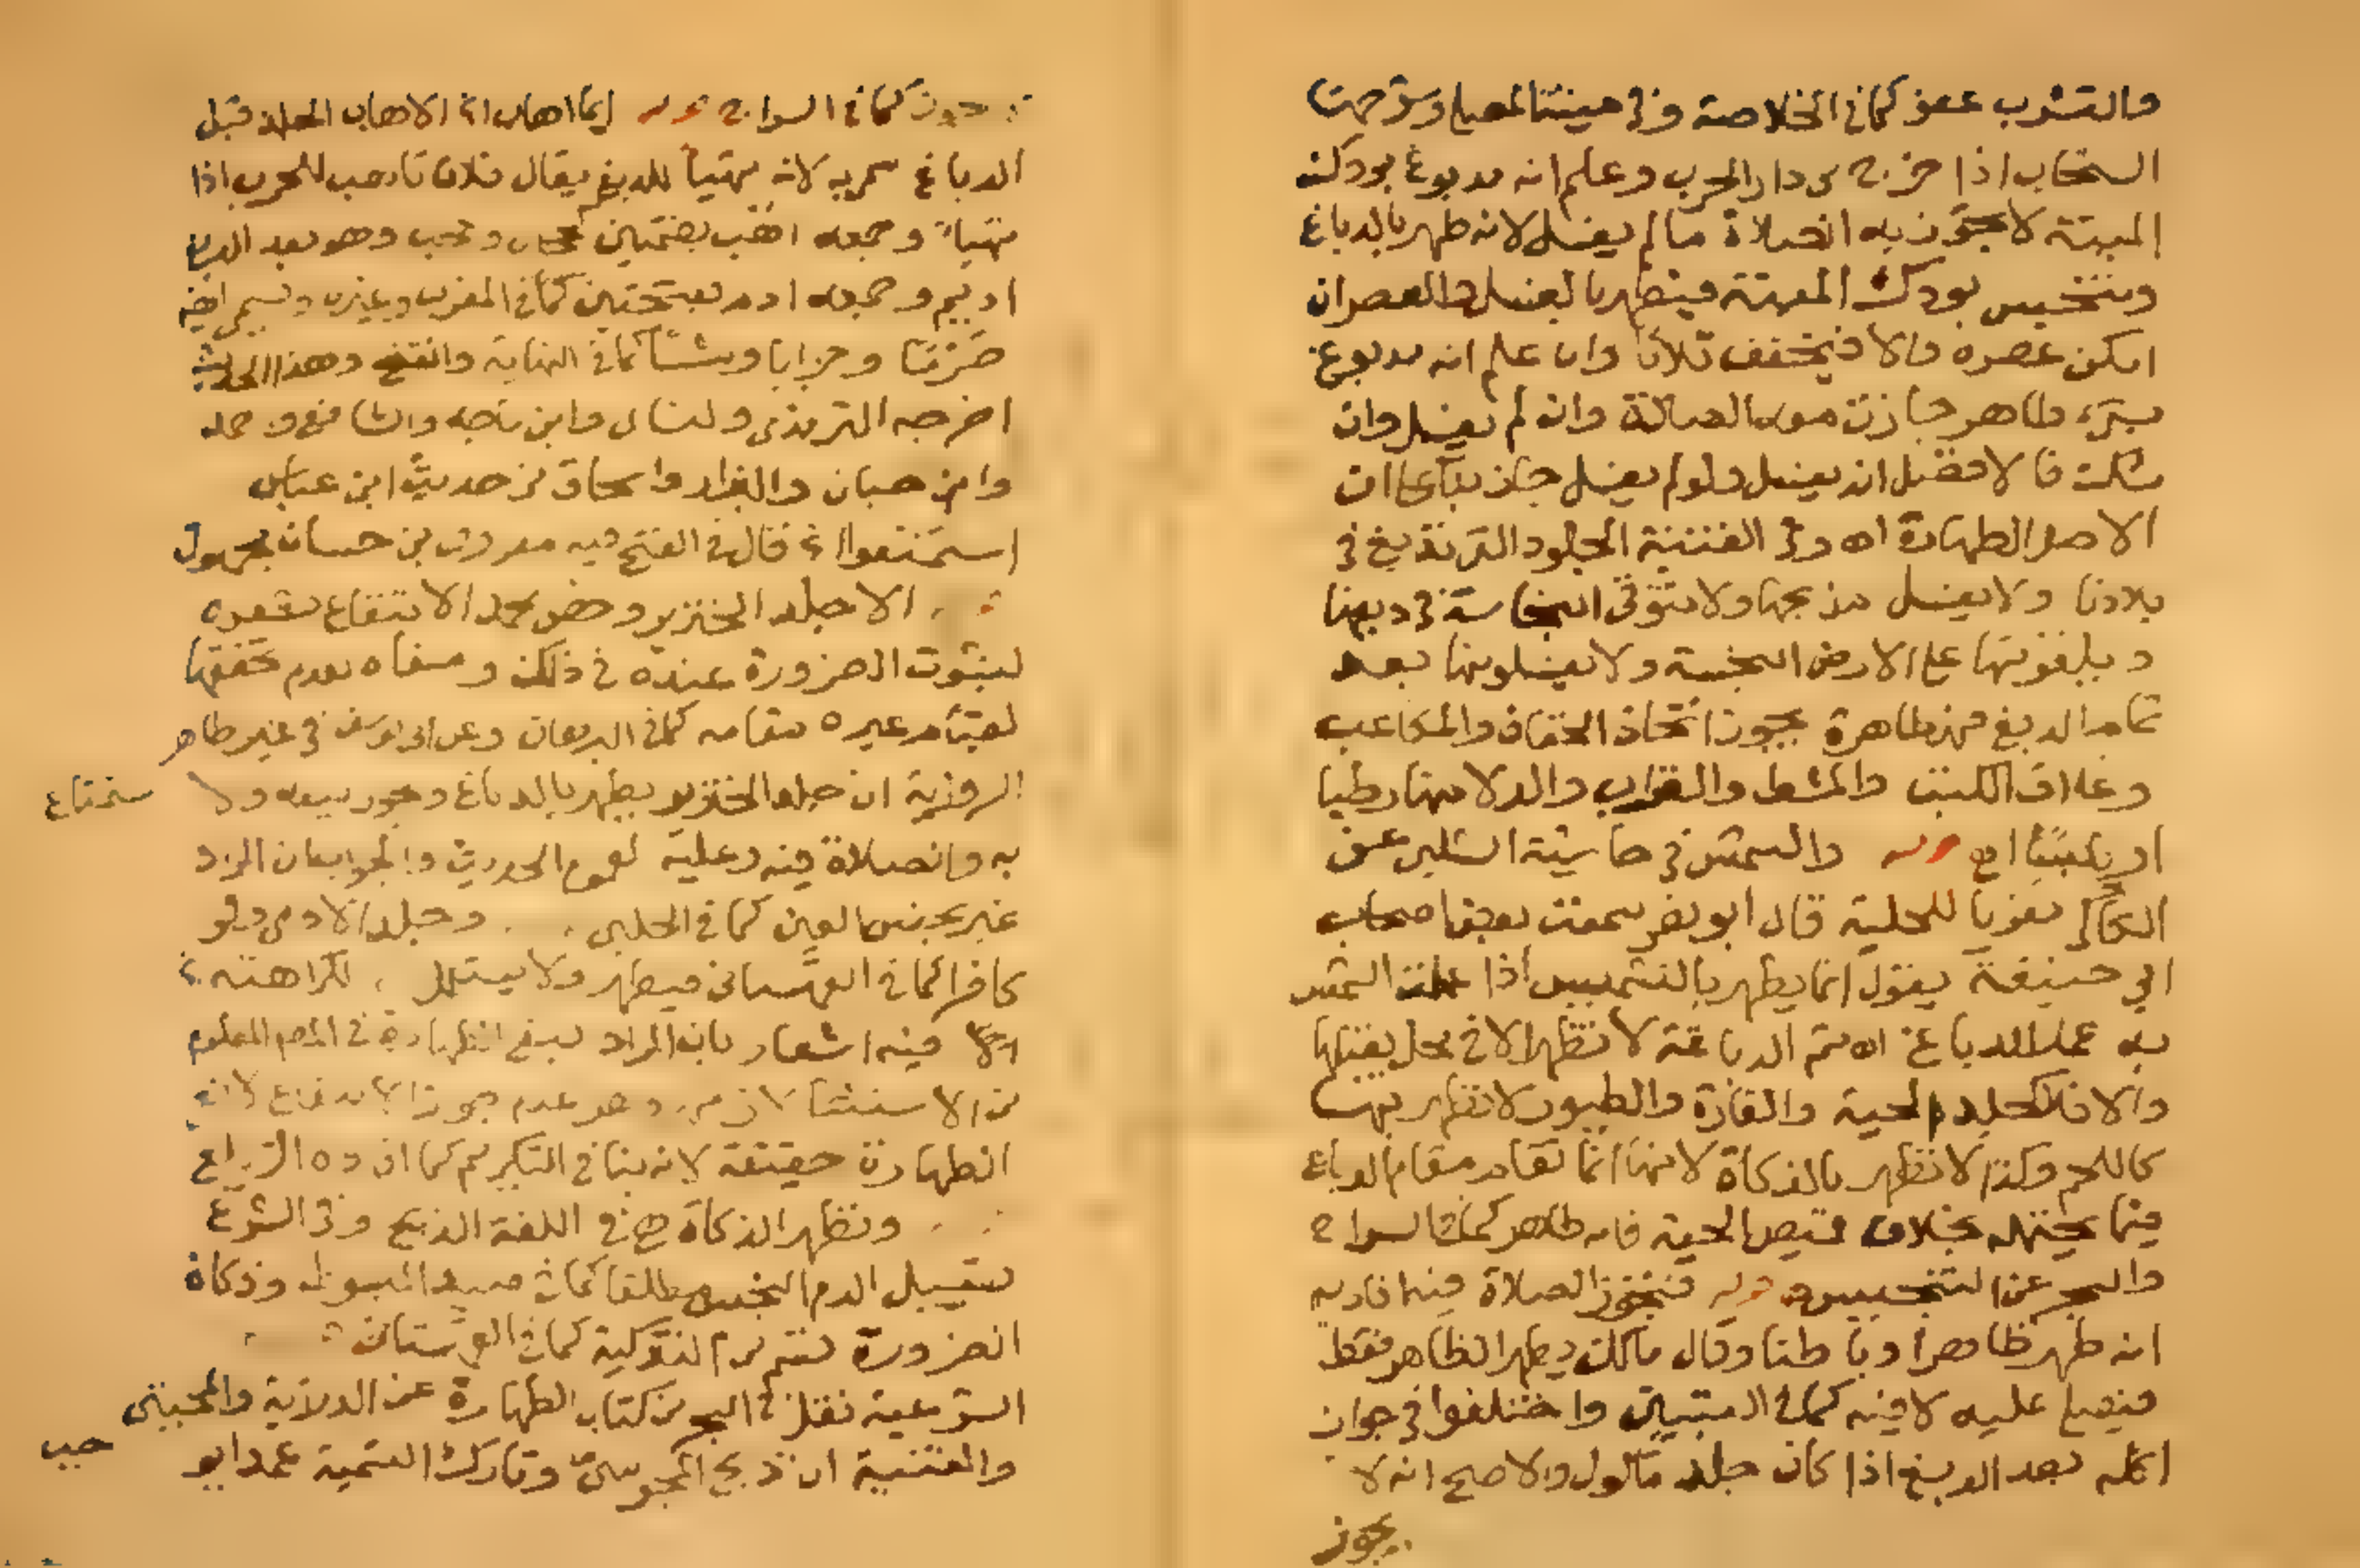 والتشرب عفو كما في الخلاصة وفي منية المصلي وشرحها
السنجاب اذا خرج من دار الحرب وعلم انه مدبوغ بودك
الميتة لا تجوز به الصلاة ما لم يغسل لانه طهر بالدباغ
وتنجس بودك الميتة فيطهر بالغسل والعصر ان
امكن عصره والا فيجفف ثلاثا وان علم انه مدبوغ
بشيء طاهر جازت معه الصلاة وان لم يغسل وان
شك فالافضل ان يغسل ولو لم يغسل جاز بناء على ان
الاصل الطهارة اه وفي القنية الجلود التي تدبغ في
بلادنا ولا يغسل مذبحها ولا تتوقى النجاسة في دبغها
ويلقونها على الارض النجسة ولا يغسلونها بعد
تمام الدبغ فهي طاهرة يجوز اتخاذ الخفاف والمكاعب
وغلاف الكتب والمشط والقراب والدلاء منها رطبا
او يابسا اه قوله والشمس في حاشية الشلبي عن
الكاكي معزيا للحلية قال ابو نصر سمعت بعض اصحاب
ابي حنيفة يقول انما يطهر بالتشميس اذا عملت الشمس
به عمل الدباغ اه ثم الدباغة لا تظهر الا في محل يقبلها
والا فلا كجلد الحية والفارة والطيور لا تطهر بها
كاللحم وكذا لا تطهر بالذكاة لانها انما تقام مقام الدباغ
فيما يحتمله بخلاف قميص الحية فانه طاهر كما في السراج
والبحر عن التجنيس قوله فتجوز الصلاة فيه افاد به
انه طهر ظاهرا وباطنا وقال مالك يطهر الظاهر فقط
فيصلى عليه لا فيه كما في التبيين واختلفوا في جواز
اكله بعد الدبغ اذا كان جلد مأكول والاصح انه لا
يجوز
كما في السراج قوله ايما اهاب الاهاب الجلد قبل
الدباغ سمي به لانه تهيأ للدبغ يقال فلان تأهب للحرب اذا
تهيأ وجمعه اهب بضمتين وهو بعد الدبغ
اديم وجمعه ادم بفتحتين كما في المغرب وغيره ويسمى ايضا
صرما وجرابا وشنا كما في النهاية والفتح وهذا الحديث
اخرجه الترمذي والنسائي وابن ماجه والشافعي واحمد
وابن حبان والبزار واسحاق من حديث ابن عباس
استمتعوا قال في الفتح فيه معروف بن حسان مجهول
الا جلد الخنزير وخص محمد الانتفاع بشعره
لثبوت الضرورة عنده في ذلك ومنعاه لعدم تحققها
لقيام غيره مقامه كما في البرهان وعن ابي يوسف في غير ظاهر
الرواية ان جلد الخنزير يطهر بالدباغ ويجوز بيعه والا
ستمتاع
به والصلاة فيه وعليه لعموم الحديث والجواب ان المراد
غير نجس العين كما في الحلبي وجلد الآدمي ولو
كافرا كما في القهستاني فيطهر ولا يستعمل لكراهته
فيه اشعار بان المراد بنفي الطهارة في المعلوم
من الاستثناء لازمه وهو عدم جواز الانتفاع لان
الطهارة حقيقة لانه ينافي التكريم كما افاده الزيلعي
وتطهر الذكاة هي في اللغة الذبح وفي الشرع
تسييل الدم النجس مطلقا كما في صيد المبسوط وذكاة
الضرورة قسم من التذكية كما في القهستاني
الشرعية نقل في البحر من كتاب الطهارة عن الدراية والمجتبى
والقنية ان ذبح المجوسي وتارك التسمية عمدا يو
جب